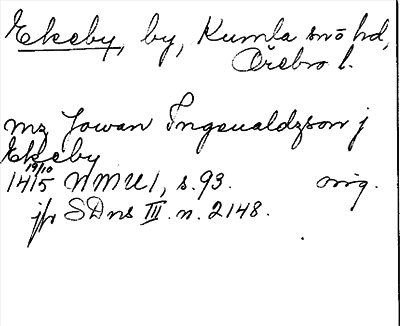 Ekeby, by, Kumla snö hd,
Örebro l.
mz Jowan Ingeualdzson j
Ekeby
19/10
1415 NMU 1, s. 93. orig.
jfr SDns III. n. 2148.